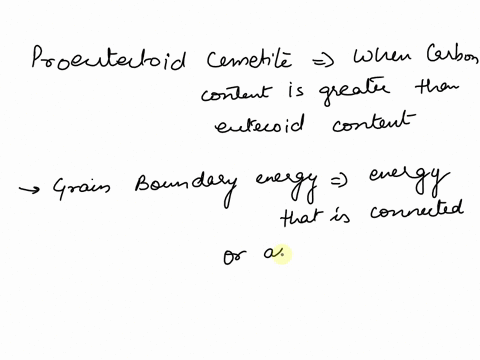 Proeutectoid Cemetite => When Carbon
content is greater than
euteroid content
→ Grain Boundary energy => energy
that is connected
or a